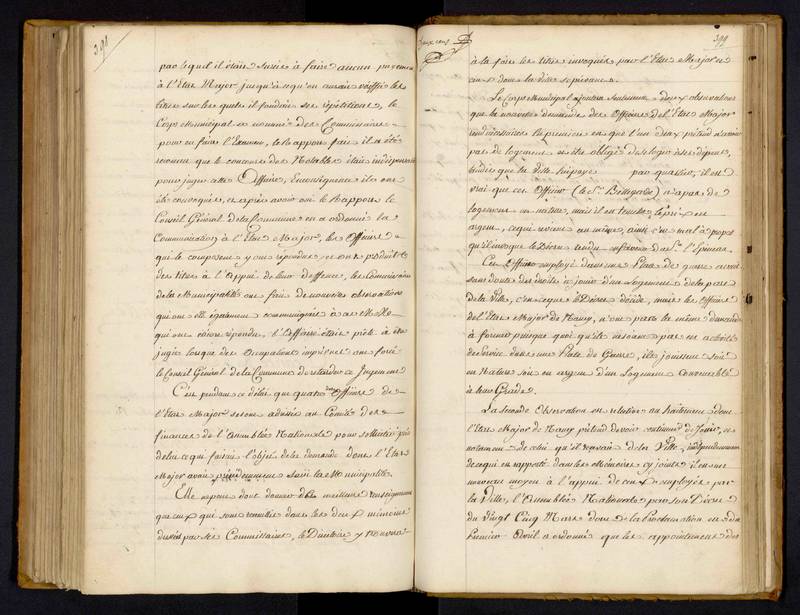 391
par lequel il était sursis à faire aucun payement
à l'Etat Major jusqu'à ce qu'on aurait vérifié les
titres sur lesquels il fondait ses répétitions, le
Corps Municipal a nommé des Commissaires
pour en faire l'Examen, le Rapport fait il a été
reconnu que le concours des Notables était indispensable
pour juger cette Affaire, En conséquence ils ont
été convoqués, et après avoir oui le Rapport le
Conseil Général de la Commune en a ordonné la
Communication à l'Etat Major, les Officiers
qui le composent y ont répondu et ont produit
des titres à l'Appui de leur deffense, les Commissaires
de la Municipalité ont fait de nouvelles observations
qui ont été également communiquées à ces
qui ont encore répondu, l'Affaire était prête à être
jugée lorsque des Occupations imprévues ont forcé
le Conseil Général de la Commune de retarder ce Jugement
C'est pendant ce délai que quatre Officiers de
l'Etat Major se sont adressés au Comité des
finances de l'Assemblée Nationale pour solliciter près
de lui ce qui faisait l'objet de la demande dont l'Etat
Major avait précédemment saisi la Municipalité.
Elle ne peut donc donner de meilleurs renseignements
que ceux qui sont consignés dans les deux mémoires
dressés par ses Commissaires, le Directoire y trouvera
399
à la faire les titres invoqués par l'Etat Major et
ceux dont la Ville se prévaut.
Le Corps Municipal ajoutera seulement deux observations
que la nouvelle demande des Officiers de l'Etat Major
rend nécessaires la première est que l'un deux prétend n'avoir
pas de logement et être obligé de se loger à ses dépens,
tandis que la Ville lui paye par quartier, il est
vrai que cet Officier (le Sr. Bellegarde) n'a pas de
logement en nature, mais il en touche le prix en
argent, ce qui revient au même, ainsi c'est mal à propos
qu'il invoque le Décret rendu en faveur du Sr. l'Epineau.
Cet Officier employé dans une Place de guerre avait
sans doute des droits à jouir d'un Logement de la part
de la Ville, c'est ce que le Décret décide, mais les Officiers
de l'Etat Major de Nancy, n'ont pas la même demande
à former puisque quoi qu'ils ne soient pas en activité
de Service dans une Place de Guerre, ils jouissent soit
en Nature soit en argent d'un Logement Convenable
à leur Grade.
La seconde Observation est relative au traitement dont
l'Etat Major de Nancy prétend devoir continuer de Jouir, et
notamment de celui qu'il recevait de la Ville, indépendamment
de ce qui est rapporté dans les Mémoires cy joints il est un
nouveau moyen à l'appui de ceux employés par
la Ville, l'Assemblée Nationale par son Décret
du Vingt Cinq Mars dont la Proclamation est du
premier Avril a ordonné que les appointements des